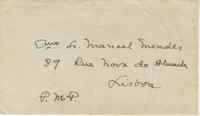 Exmo Sr. Manuel Mendes
87 Rua Nova do Almada
Lisboa
P.M.P.